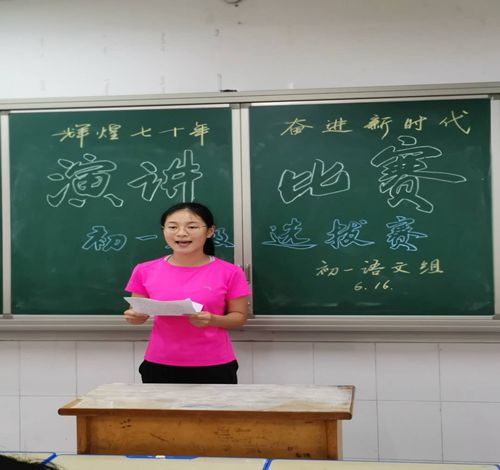 辉煌七十年 奋进新时代
演讲比赛
初一级选拔赛
初一语文组
6.16.